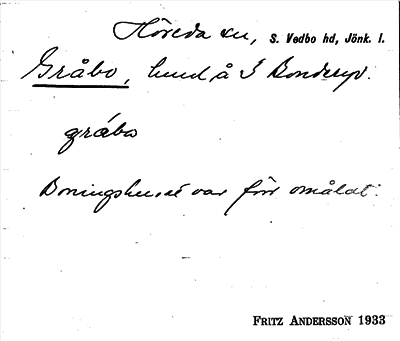 Höreda sn, S. Vedbo hd, Jönk. l.
Gråbo, lund å S Bonderyd.
gråbo
Boningshuset var förr omålat.
FRITZ ANDERSSON 1933